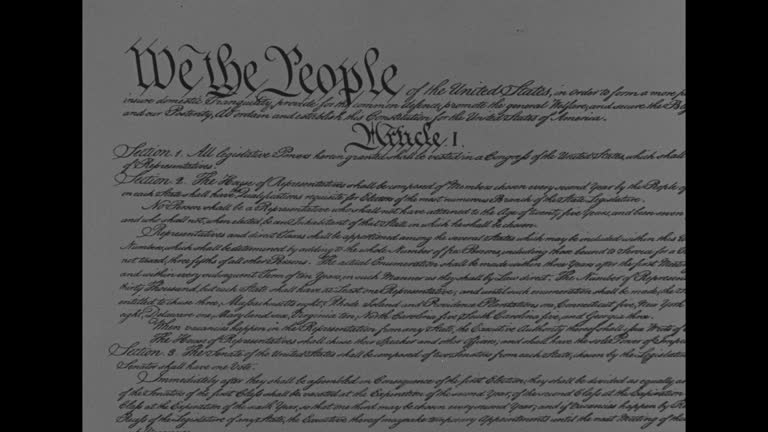 We the People of the United States, in order to form a more
insure domestic Tranquility, provide for the common defence, promote the general Welfare, and secure the
and our Posterity, do ordain and establish this Constitution for the United States of America.
Article. I.
Section. 1. All legislative Powers herein granted shall be vested in a Congress of the United States, which shall
of Representatives.
Section. 2. The House of Representatives shall be composed of Members chosen every second Year by the People of
in each State shall have the Qualifications requisite for Electors of the most numerous Branch of the State Legislature.
No Person shall be a Representative who shall not have attained to the Age of twenty five Years, and been seven
and who shall not, when elected, be an Inhabitant of that State in which he shall be chosen.
Representatives and direct Taxes shall be apportioned among the several States which may be included within this
Numbers, which shall be determined by adding to the whole Number of free Persons, including those bound to Service for a
not taxed, three fifths of all other Persons. The actual Enumeration shall be made within three Years after the first
and within every subsequent Term of ten Years, in such Manner as they shall by Law direct. The Number of
thirty Thousand, but each State shall have at Least one Representative; and until such enumeration shall be made, the
entitled to chuse three, Massachusetts eight, Rhode Island and Providence Plantations one, Connecticut five, New York
eight, Delaware one, Maryland six, Virginia ten, North Carolina five, South Carolina five, and Georgia three.
When vacancies happen in the Representation from any State, the Executive Authority thereof shall issue Writs of
The House of Representatives shall chuse their Speaker and other Officers; and shall have the sole Power of
Section. 3. The Senate of the United States shall be composed of two Senators from each State, chosen by the
Senator shall have one Vote.
Immediately after they shall be assembled in Consequence of the first Election, they shall be divided as equally as
of the Senators of the first Class shall be vacated at the Expiration of the second Year, of the second Class at the Expiration
Class at the Expiration of the sixth Year, so that one third may be chosen every second Year; and if Vacancies happen by
Recess of the Legislature of any State, the Executive thereof may make temporary Appointments until the next Meeting of the